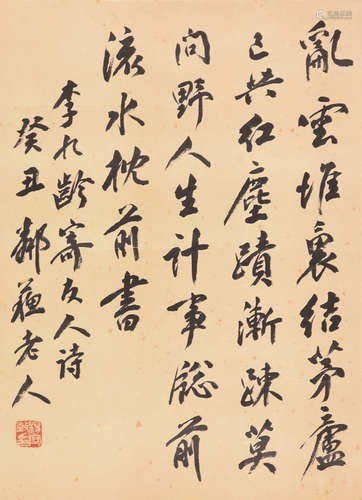 亂雲堆裏結茅廬
已共紅塵蹟漸疎莫
問野人生計事牎前
流水枕前書
李九齡寄友人詩
癸丑鄰蘇老人